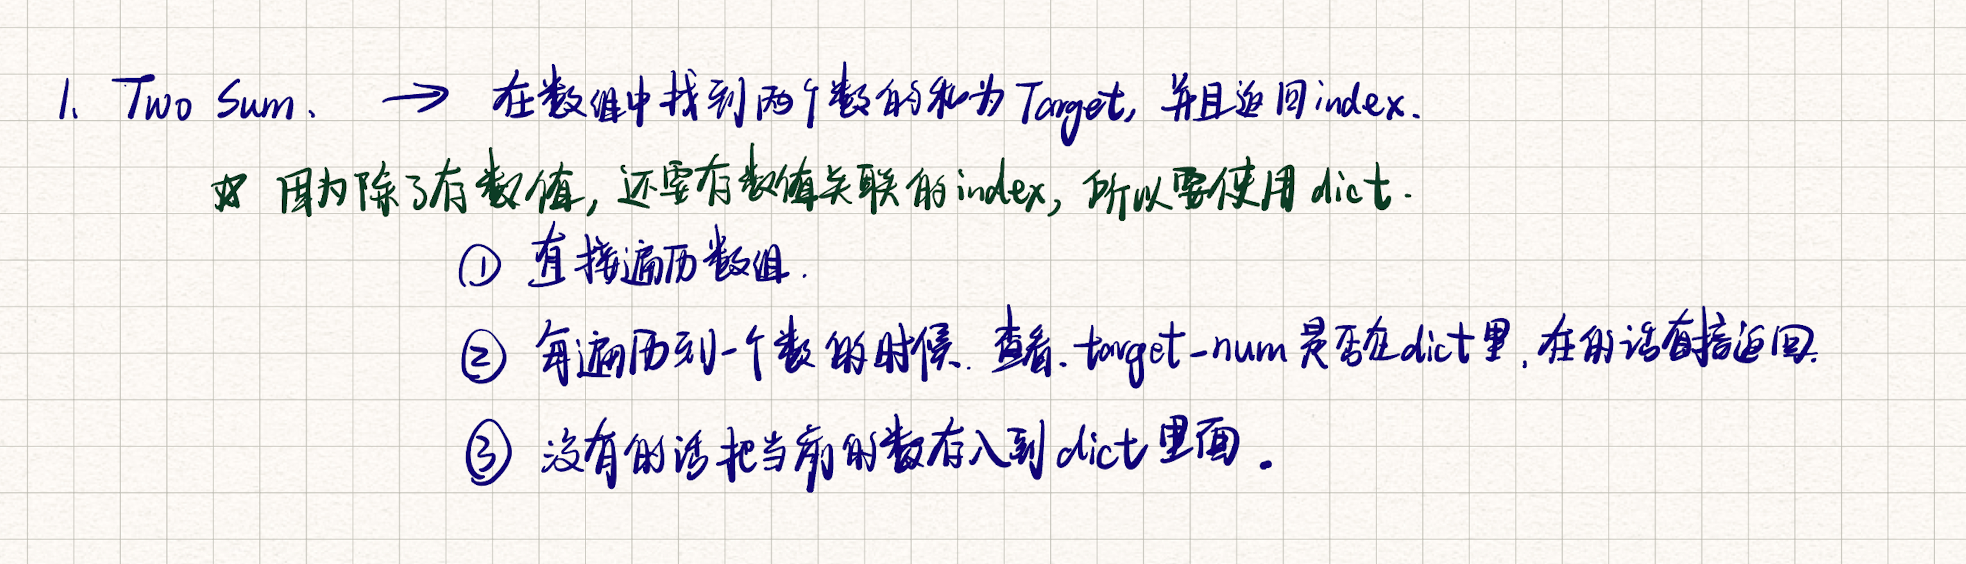 1. Two Sum. → 在数组中找到两个数的和为Target, 并且返回index.
☆ 因为除了存数值, 还要存数值关联的index, 所以要使用dict.
① 直接遍历数组.
② 每遍历到一个数的时候. 查看. target-num是否在dict里, 在的话直接返回.
③ 没有的话把当前的数存入到dict里面.